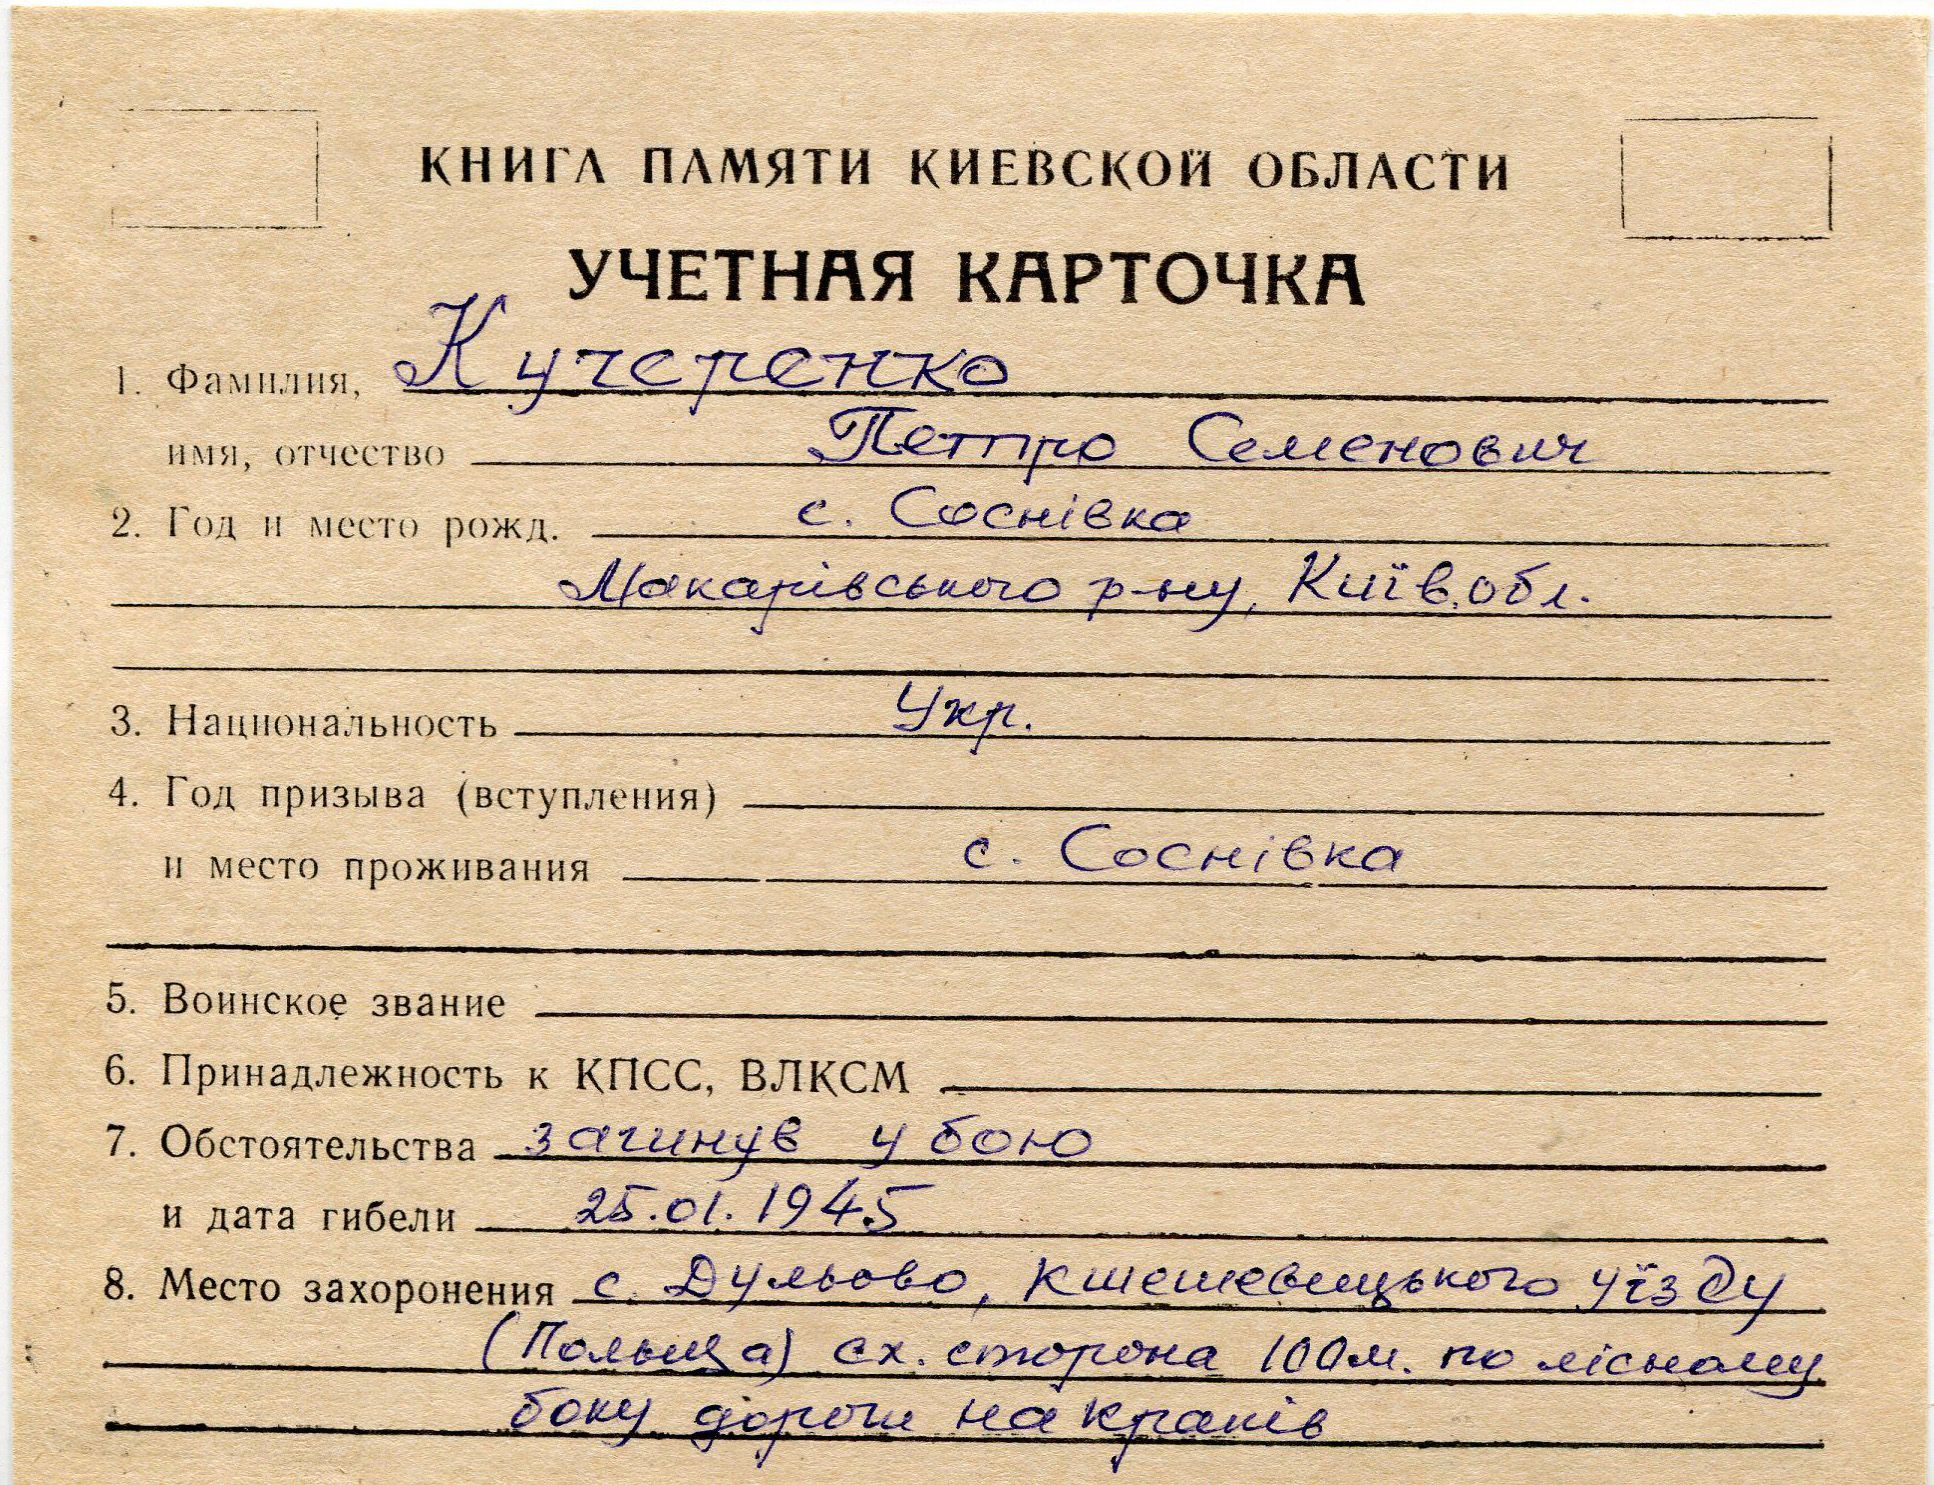 КНИГА ПАМЯТИ КИЕВСКОЙ ОБЛАСТИ
УЧЕТНАЯ КАРТОЧКА
1. Фамилия, Кучеренко
имя, отчество Петро Семенович
2. Год и место рожд. с. Соснівка
Макарівського р-ну, Київ. обл.
3. Национальность Укр.
4. Год призыва (вступления)
и место проживания с. Соснівка
5. Воинское звание
6. Принадлежность к КПСС, ВЛКСМ
7. Обстоятельства загинув у бою
и дата гибели 25.01.1945
8. Место захоронения с. Дульово, Кшешевицького уїзду
(Польща) сх. сторона 100м. по лісному
боку дороги на Краків